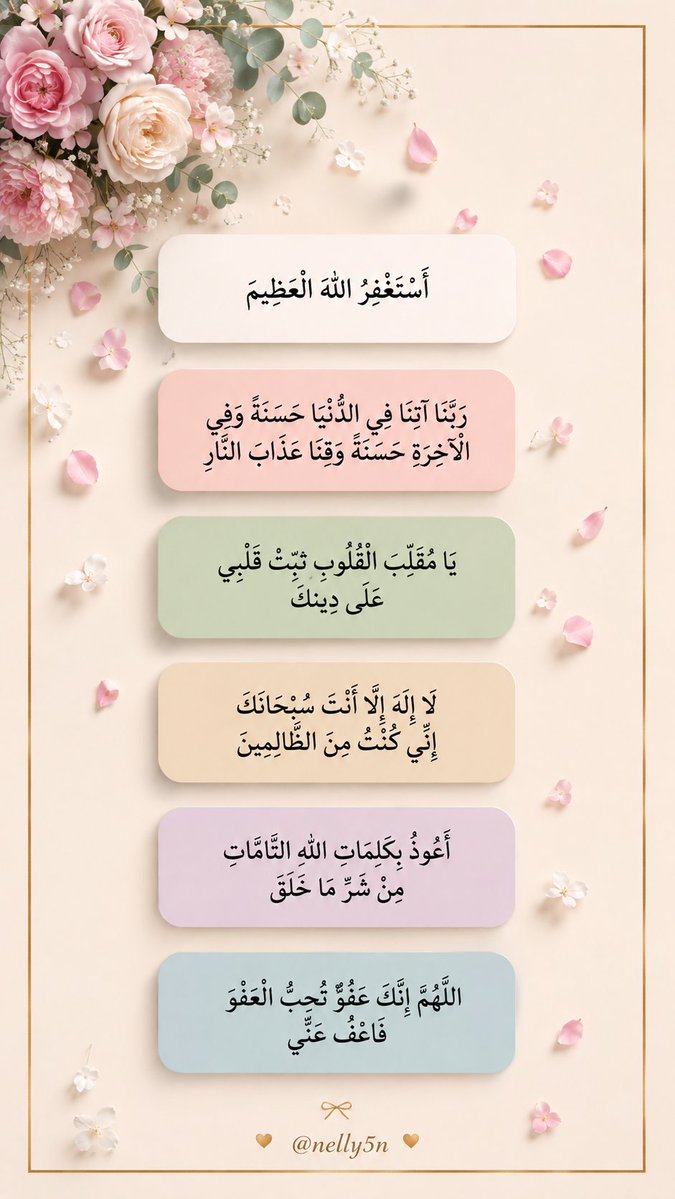 أَسْتَغْفِرُ اللهَ الْعَظِيمَ
رَبَّنَا آتِنَا فِي الدُّنْيَا حَسَنَةً وَفِي
الْآخِرَةِ حَسَنَةً وَقِنَا عَذَابَ النَّارِ
يَا مُقَلِّبَ الْقُلُوبِ ثَبِّتْ قَلْبِي
عَلَى دِينكَ
لَا إِلَهَ إِلَّا أَنْتَ سُبْحَانَكَ
إِنِّي كُنْتُ مِنَ الظَّالِمِينَ
أَعُوذُ بِكَلِمَاتِ اللهِ التَّامَّاتِ
مِنْ شَرِّ مَا خَلَقَ
اللَّهُمَّ إِنَّكَ عَفُوٌّ تُحِبُّ الْعَفْوَ
فَاعْفُ عَنِّي
@nelly5n